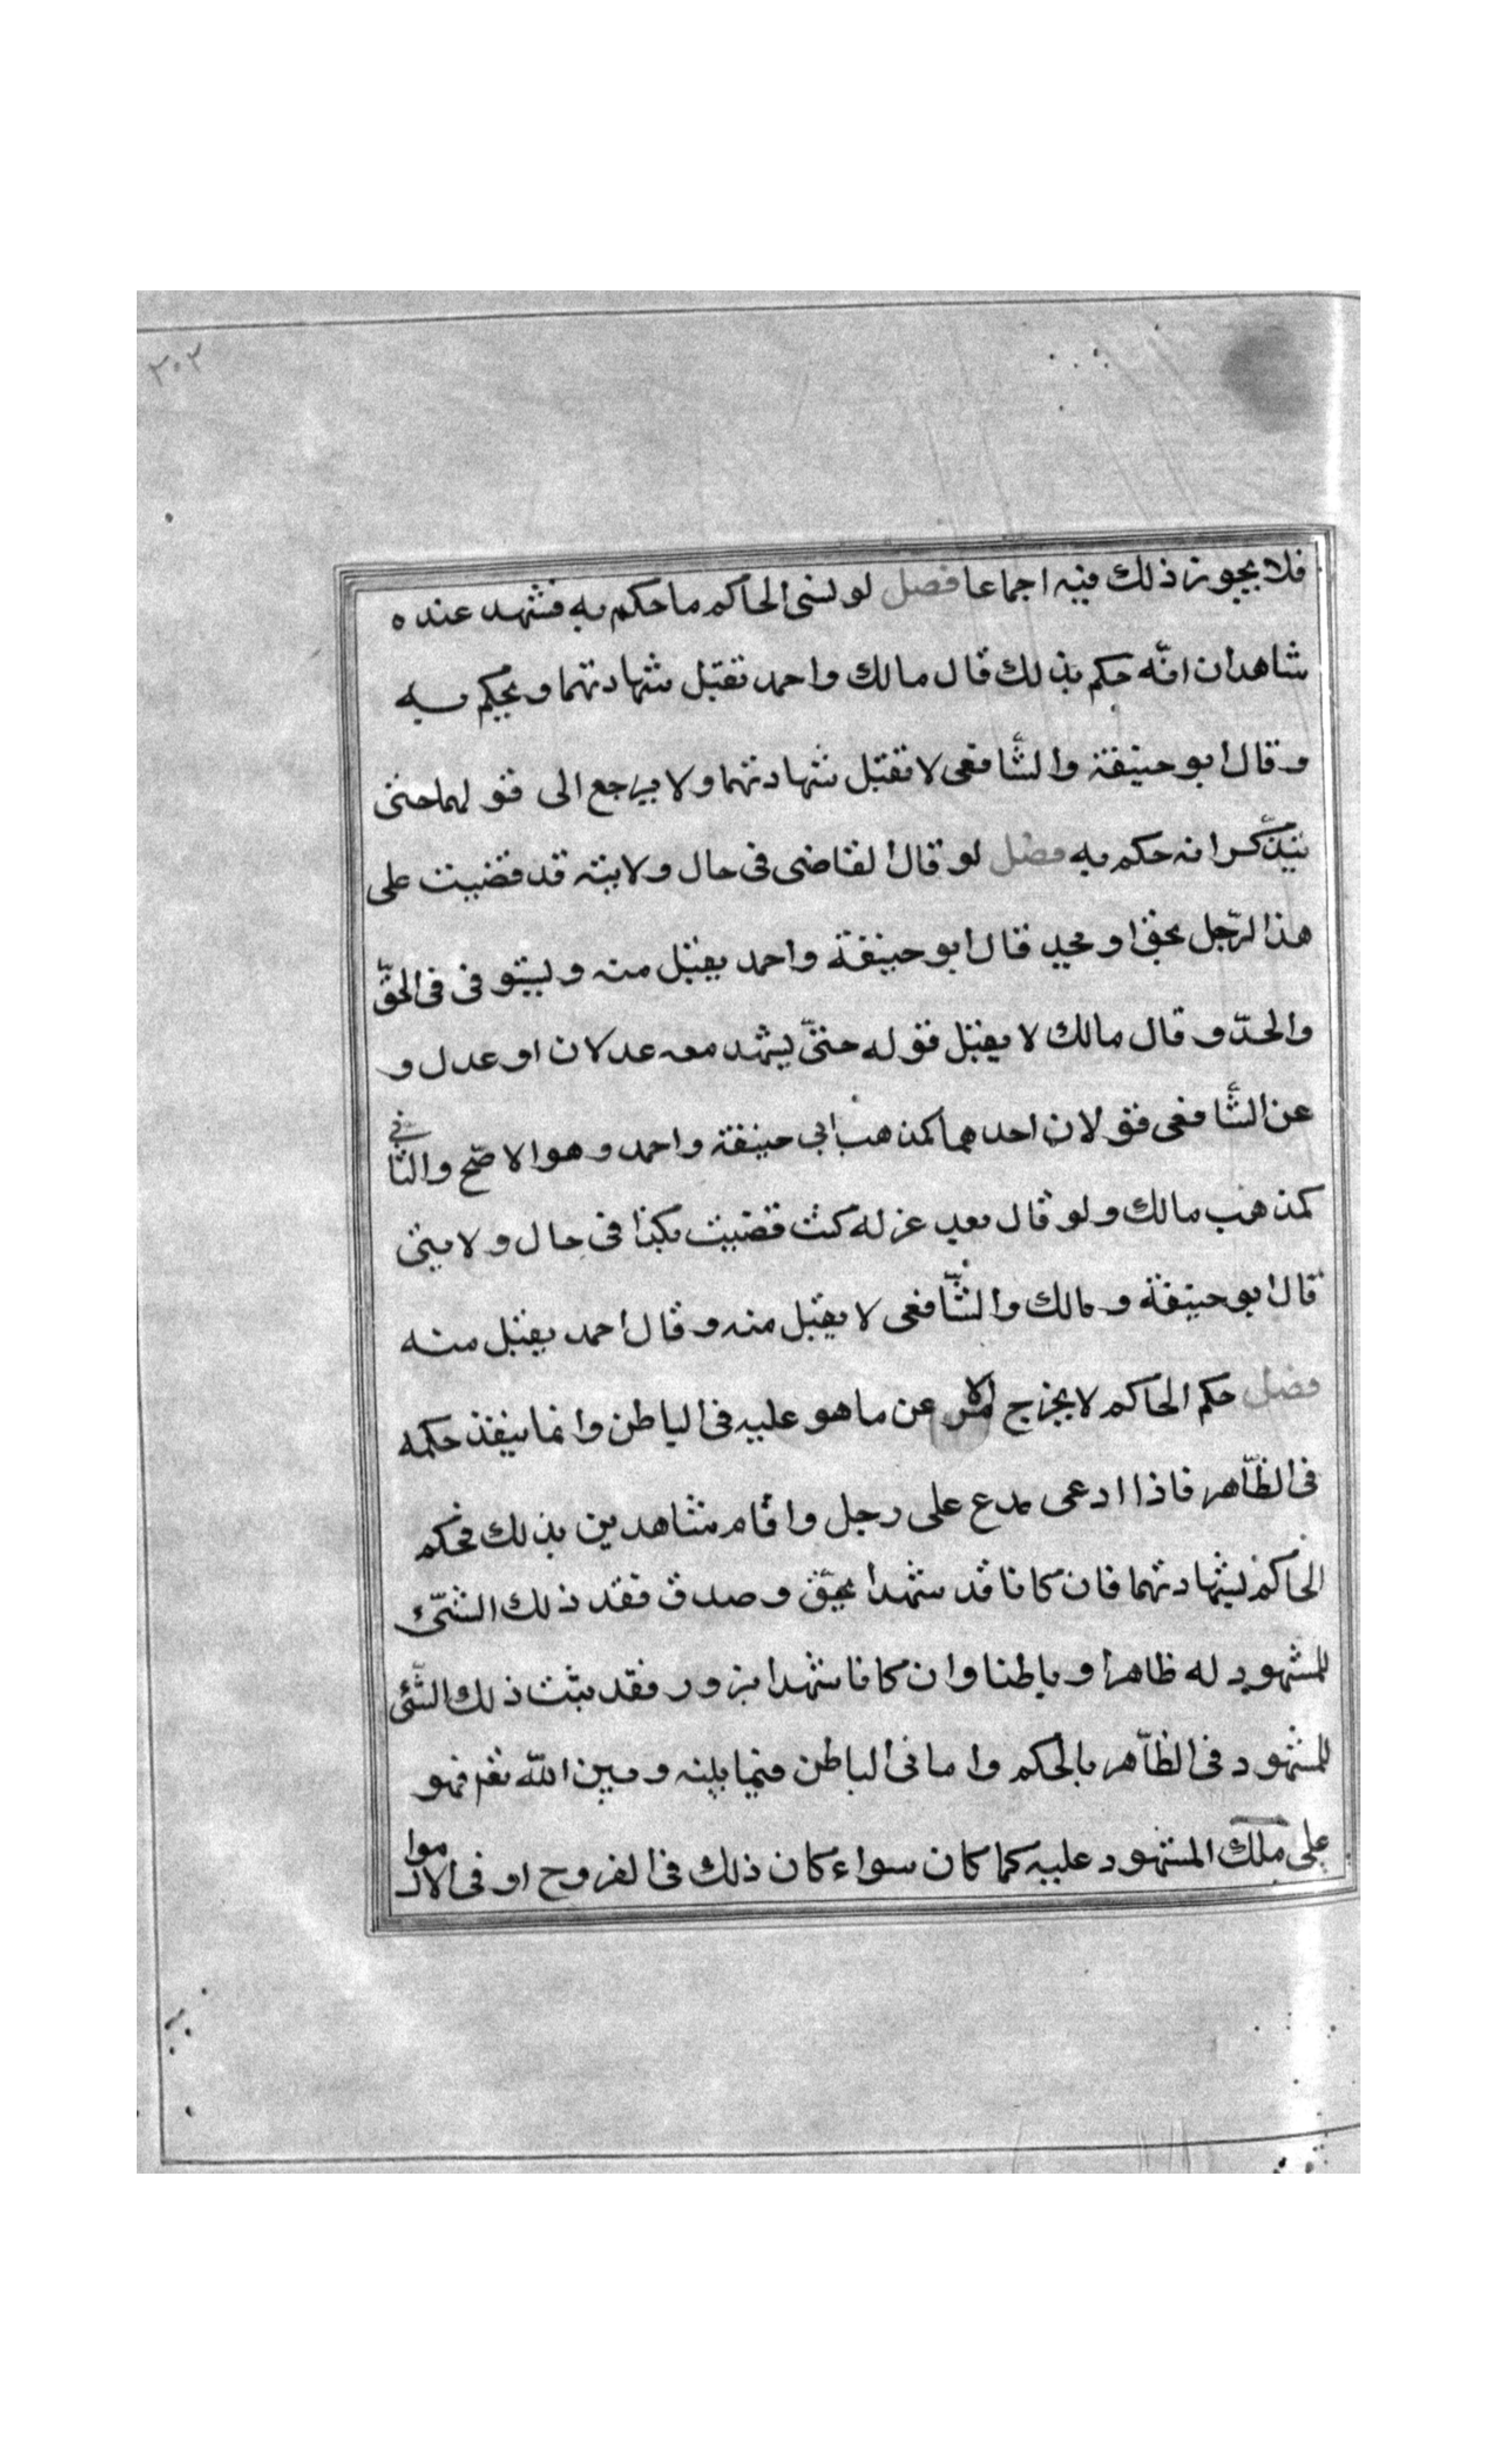 ٣٠٢
فلا يجوز ذلك فيه اجماعا فصل لو نسى الحاكم ما حكم به فشهد عنده
شاهدان انّه حكم بذلك قال مالك واحمد تقبل شهادتهما ويحكم به
وقال ابو حنيفة والشّافعى لا تقبل شهادتهما ولا يرجع الى قولهما حتى
يتذكّر انه حكم به فصل لو قال القاضى فى حال ولايته قد قضيت على
هذا الرّجل بحق او بحد قال ابو حنيفة واحمد يقبل منه ويستوفى فى الحقّ
والحدّ وقال مالك لا يقبل قوله حتىّ يشهد معه عدلان او عدل و
عن الشّافعى قولان احدهما كمذهب ابى حنيفة واحمد وهو الاصّح والثّانى
كمذهب مالك ولو قال بعد عزله كنت قضيت بكذا فى حال ولايتى
قال ابو حنيفة ومالك والشّافعى لا يقبل منه وقال احمد يقبل منه
فصل حكم الحاكم لا يخرج الامر عن ما هو عليه فى الباطن وانما ينفذ حكمه
فى الظّاهر فاذا ادعى مدع على رجل واقام شاهدين بذلك فحكم
الحاكم بشهادتهما فان كانا قد شهدا بحقّ وصدق فقد ذلك الشّىء
للمشهود له ظاهرا وباطنا وان كانا شهدا بزور فقد ثبت ذلك الشّئ
للمشهود فى الظّاهر بالحكم واما فى الباطن فيما بينه وبين اللّه تع فهو
على ملك المشهود عليه كما كان سواء كان ذلك فى الفروج او فى الاموا